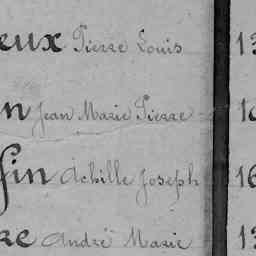 eux Pierre Louis 13
n Jean Marie Pierre
fin Achille Joseph 16
re André Marie 13